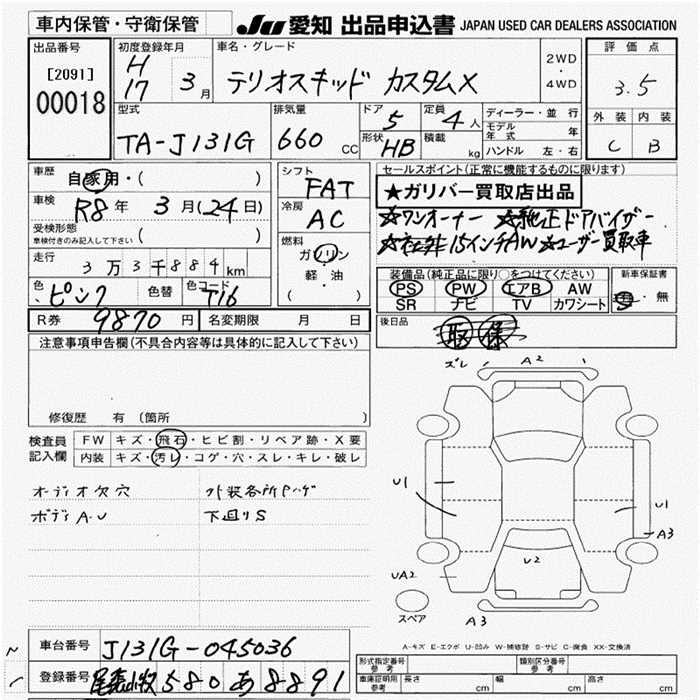 車内保管・守衛保管 JU 愛知 出品申込書 JAPAN USED CAR DEALERS ASSOCIATION
出品番号 初度登録年月 車名・グレード 2WD・4WD 評価点
[2091] H17年 3月 テリオスキッド カスタムX 3.5
00018
型式 排気量 ドア 定員 ディーラー・並行 外装 内装
TA-J131G 660 CC 5 4人 モデル年式 年 C B
形状 HB 積載 kg ハンドル 左・右
車歴 自家用・( ) シフト FAT セールスポイント(正常に機能するものに限ります)
車検 R8年 3月(24日) 冷房 AC ★ガリバー買取店出品
受検形態 車検付きのみ記入して下さい ( ) ☆ワンオーナー ☆純正ドアバイザー
走行 3万3千884km 燃料 ガソリン 軽・油 ( ) ☆社外15インチAW ☆ユーザー買取車
色 ピンク 色替 色コード T16 装備品(純正品に限り○をつけてください) 新車保証書
PS PW エアB AW 有・無
SR ナビ TV カワシート
R券 9870円 名変期限 月 日 後日品 取 保
注意事項申告欄(不具合内容等は具体的に記入して下さい)
修復歴 有 (箇所
検査員記入欄 FW キズ・飛石・ヒビ割・リペア跡・X要
内装 キズ・汚レ・コゲ・穴・スレ・キレ・破レ
オーディオ欠穴 外装各所ハゲ
ボディA-U 下回りS
ズレ A2
U1
U1
A3
UA2 U2
スペア A3
A-キズ E-エクボ U-凹み W-補修跡 S-サビ C-腐食 XX-交換済
車台番号 J131G-045036
登録番号 尾張小牧580あ8891
形式指定番号 参考 類別区分番号 参考
車庫証明用 参考 長さ cm 幅 cm 高さ cm